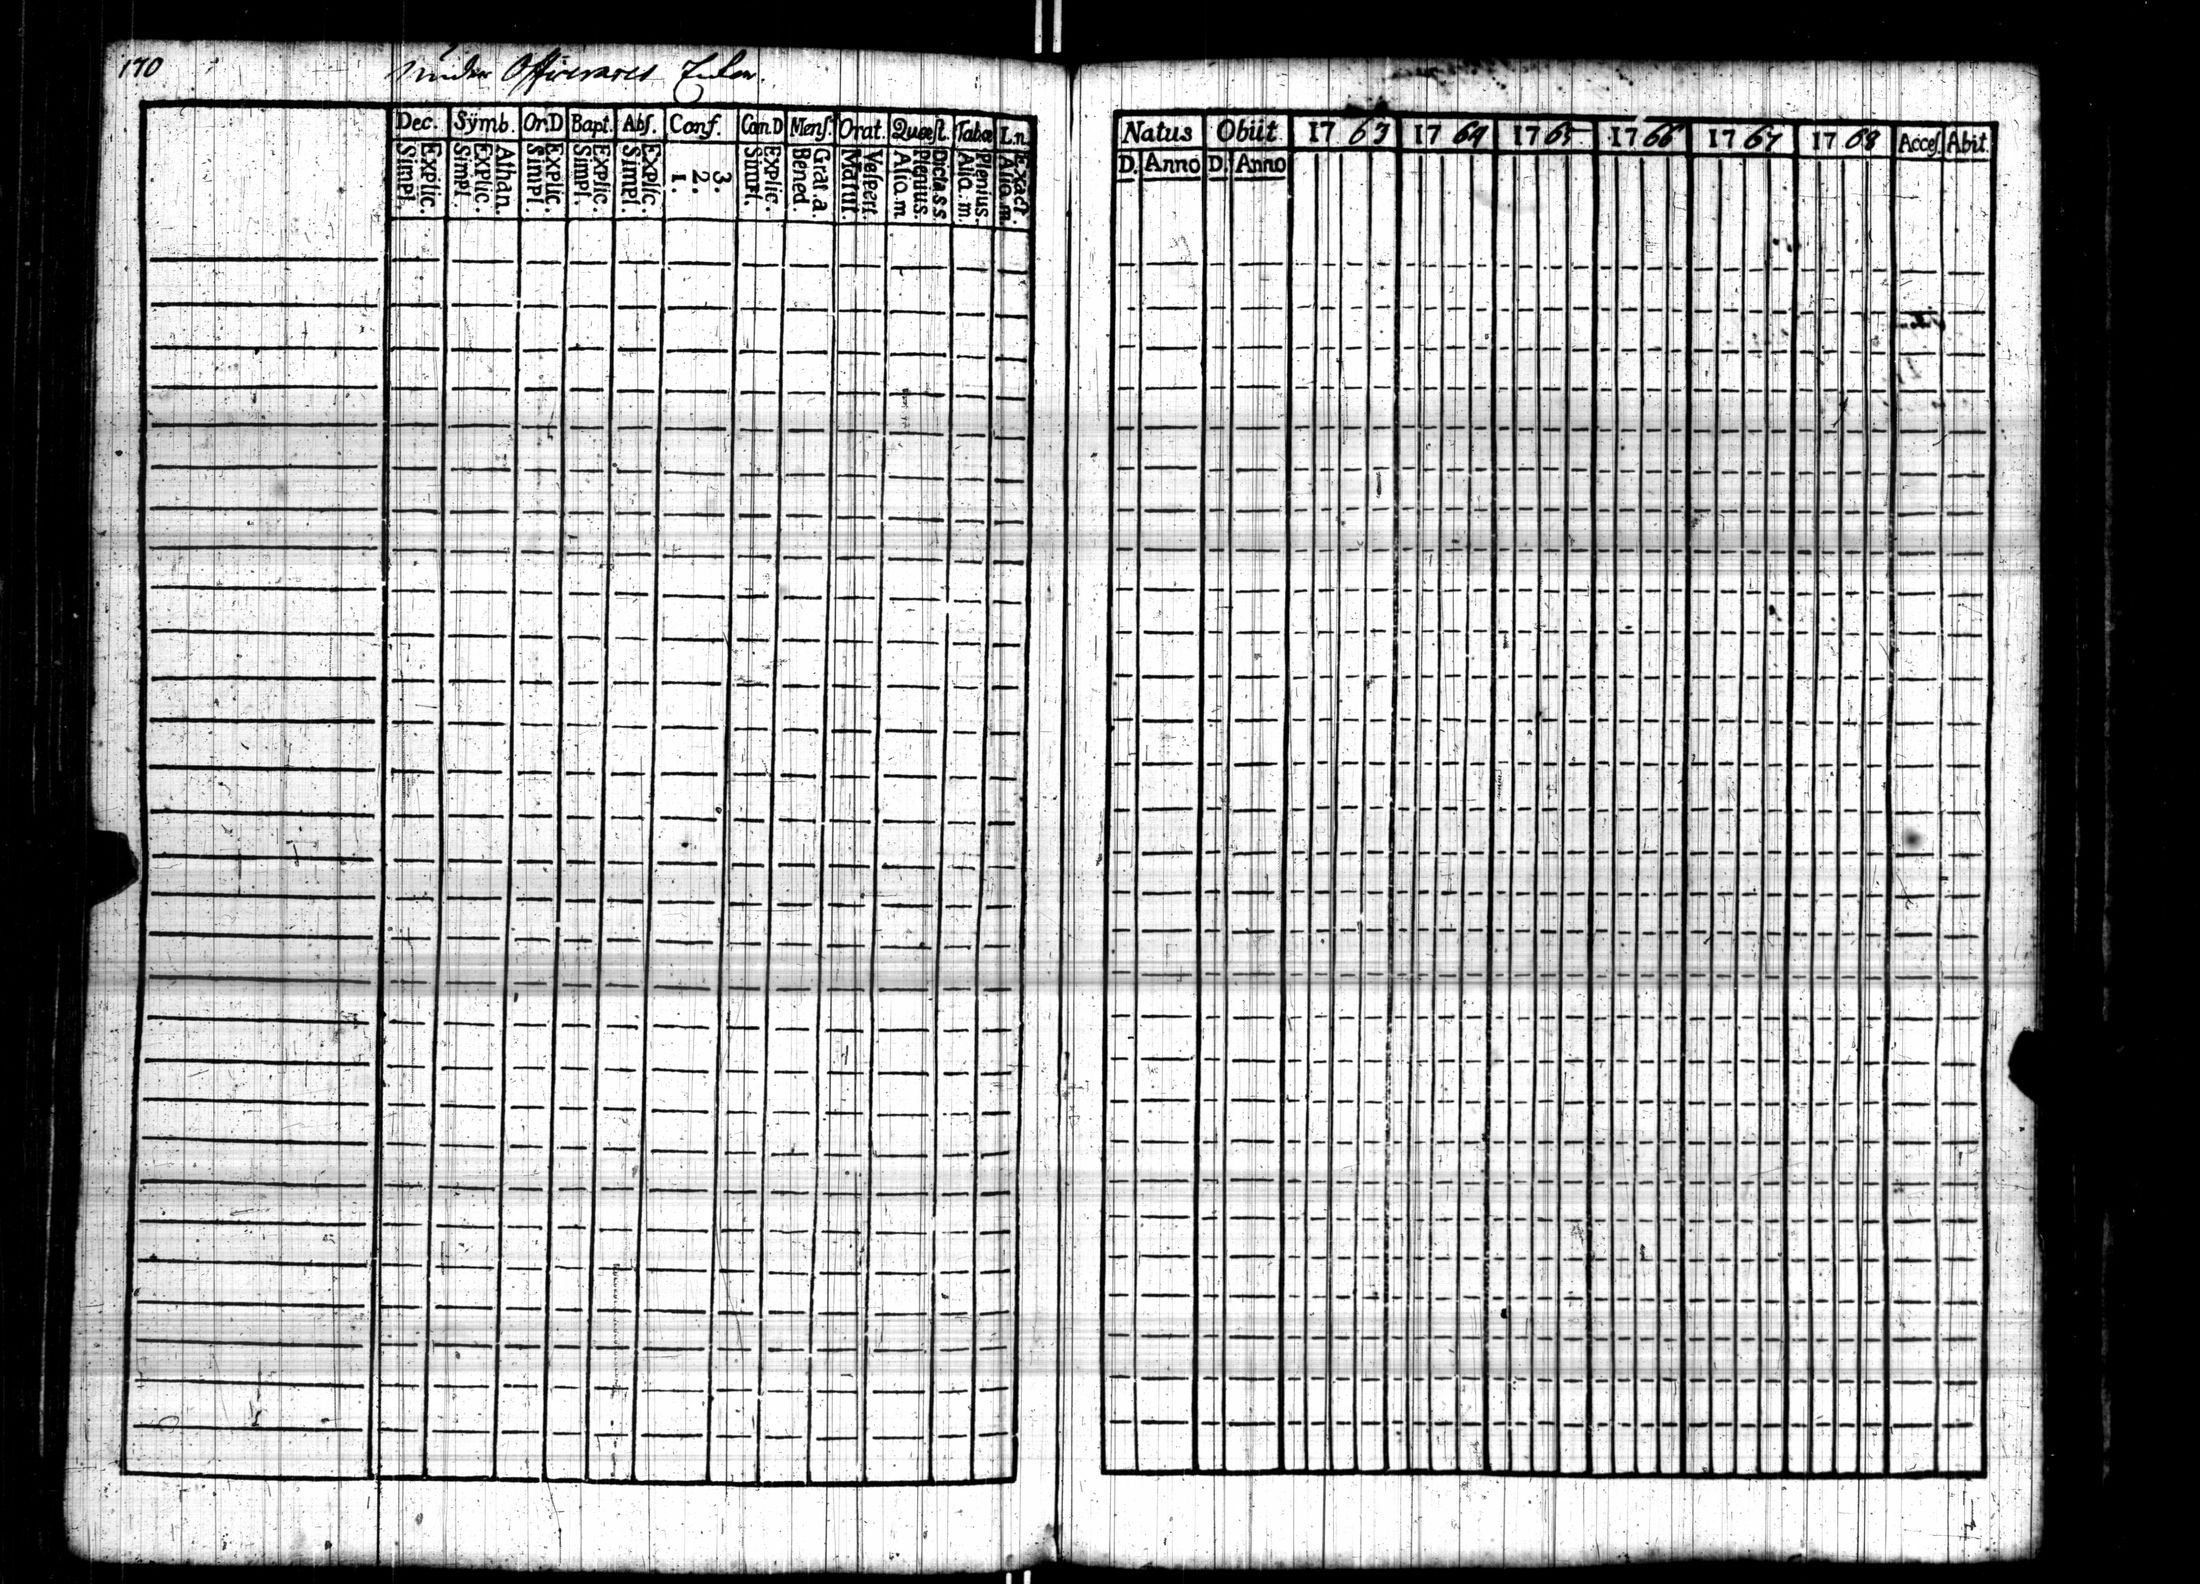 170
Under Officerares Enkor.
Dec. Sÿmb. Or.D Bapt. Abſ. Conf. Cœn.D Menſ. Orat. Quæſt. Tabœ L.n.
Explic. Simpl. Athan. Explic. Simpl. Explic. Simpl. Explic. Simpl. Explic. Simpl. 3. 2. 1. Explic. Simpl. Grat. a. Bened. Veſpert. Matut. Dicta.s.s. Plenius. Aliq.m. Plenius. Aliq.m. Exact. Aliq.m.
Natus Obiit 1763 1764 1765 1766 1767 1768 Acceſ. Abit.
D. Anno D. Anno